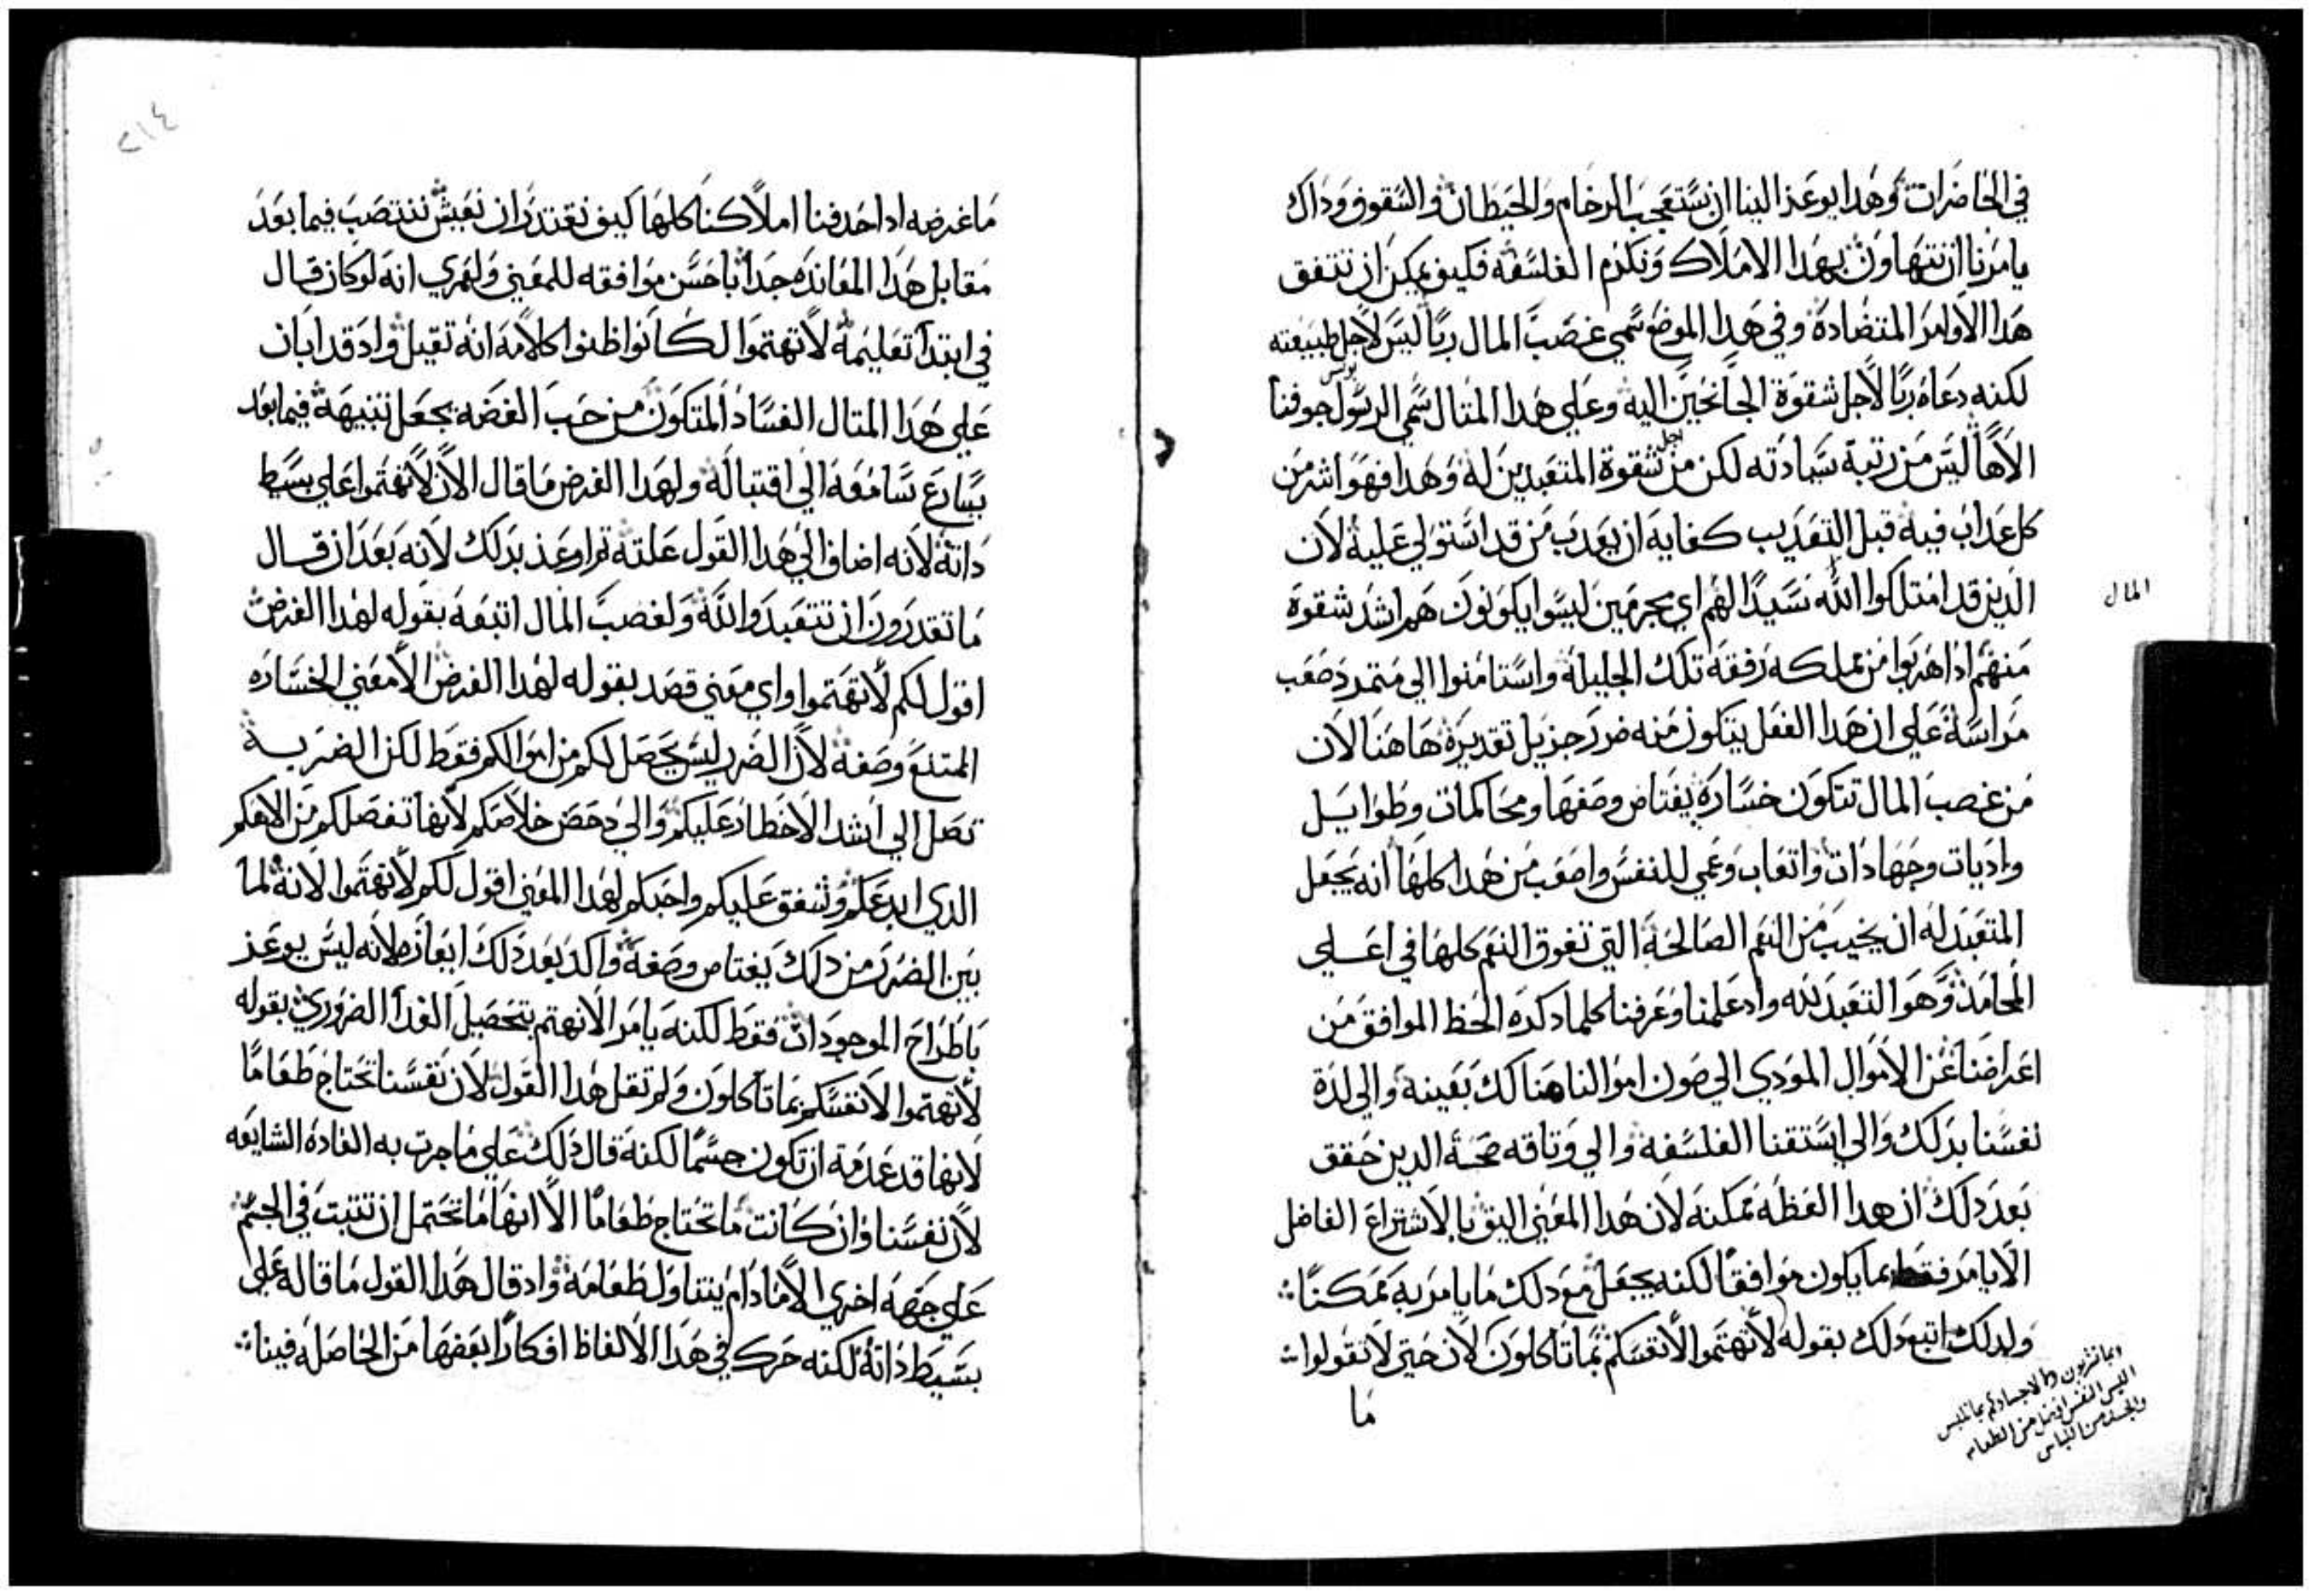 في الحاضرات وهدا يوعز الينا ان نستعجب الرخام والحيطان والسقوف وداك
يامرنا ان نتهاون بهدا الاملاك ونكرم الفلسفه فكيف يمكن ان تتفق
هدا الاوامر المتضاده وفي هدا الموضع سمي غصب المال ربا ليس لاجل طبيعته
لكنه دعاه ربا لاجل شقوة الجانحين اليه وعلي هدا المتال سمي الرسول بولس جوفنا
الاها ليس من رتبة سيادته لكن من اجل شقوة المتعبدين له وهدا فهو اشر من
كل عداب فيه قبل التعديب كفايه ان يعدب من قد استولي عليه لان
الدين قد امتلكوا الله سيدا لهم اي مجرمين ليسوا يكونون هم اشد شقوة
المال
منهم ادا هربوا من مملكه رفقه تلك الجليله واستامنوا الي متمرد صعب
مراسه علي ان هدا الفعل يتكون منه ضرر جزيل تقديره هاهنا لان
من غصب المال تتكون خساره يغتاص وصفها ومحاكمات وطوايل
واديات وجهادات واتعاب وعمي للنفس واصعب من هدا كلها انه يجعل
المتعبد له ان يخيب من النعم الصالحه التي تفوق النعم كلها في اعلي
المحامد وهو التعبد لله واد علمنا وعرفنا كلما دكره الحظ الموافق من
اعراضنا عن الاموال المودي الي صون اموالنا هنالك بعينه والي لدة
نفسنا بدلك والي استقنا الفلسفه والي وتاقه صحة الدين حقق
بعد دلك ان هدا العظه ممكنه لان هدا المعني اليق بالاشتراع الفاضل
الا يامر فقط بما يكون موافقا لكنه يجعل مع دلك ما يامر به ممكنا
ولدلك اتبع دلك بقوله لا تهتموا لانفسكم بما تاكلون لان حتي لا تقولوا
وبما تشربون ولا لاجسادكم بما تلبس
اليس النفس افضل من الطعام
والجسد من اللباس
ما
٢١٤
ما غرضه ادا حدفنا املاكنا كلها كيف نقتدر ان نعيش ننتصب فيما بعد
مقابل هدا المعانده جدا باحسن موافقه للمعني ولعمري انه لو كان قال
في ابتدآ تعليمه لا تهتموا لكانوا ظنوا كلامه انه تقيل واد قد ابان
علي هدا المتال الفساد المتكون من حب الفضه يجعل تنبيهه فيما بعد
يسارع سامعه الي اقتباله ولهدا الغرض ما قال الان لا تهتموا علي بسيط
داته لانه اضاف الي هدا القول علته تم اوعز بدلك لانه بعد ان قال
ما تقدرون ان تتعبدوا الله ولغصب المال اتبعه بقوله لهدا الغرض
اقول لكم لا تهتموا واي معني قصد بقوله لهدا الغرض الا معني الخساره
المتنع وصفه لان الضرر ليس يحصل لكم من اموالكم فقط لكن الضربه
تصل الي اشد الاخطار عليكم والي دحض خلاصكم لانها تفصلكم من الاهكم
الدي ابدعكم وشفق عليكم واحبكم لهدا المعني اقول لكم لا تهتموا لانه لما
بين الضرر من دلك يغتاص وصفه واكد بعد دلك ايعازه لانه ليس يوعز
باطراح الموجودات فقط لكنه يامر الا نهتم بتحصيل الغدآ الضروري بقوله
لا تهتموا لانفسكم بما تاكلون ولم تقل هدا القول لان نفسنا تحتاج طعاما
لانها قد عدمه ان تكون جسما لكنه قال دلك علي ما جرت به العاده الشايعه
لان نفسنا وان كانت ما تحتاج طعاما الا انها ما تحتمل ان تتبت في الجسم
علي جهه اخري الا ما دام يتناول طعامه واد قال هدا القول ما قاله علي
بسيط داته لكنه حرك في هدا الالفاظ افكارا بعضها من الحاصله فينا